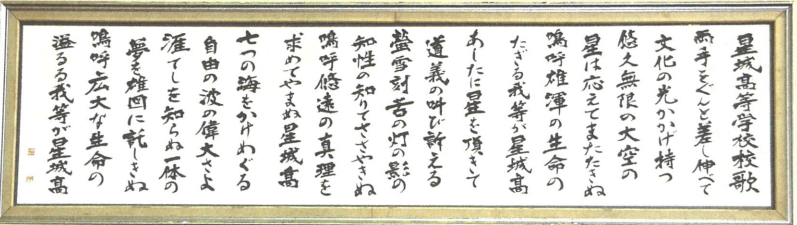 星城高等学校校歌
両手をぐんと差し伸べて
文化の光かかげ持つ
悠久無限の大空の
星は応えてまたたきぬ
嗚呼雄渾の生命の
たぎる我等が星城高
あしたに星を頂きて
道義の叫び訴える
螢雪刻苦の灯の影の
知性の知りてささやきぬ
嗚呼悠遠の真理を
求めてやまぬ星城高
七つの海をかけめぐる
自由の波の偉大さよ
涯てしを知らぬ一体の
夢を雄図に託しきぬ
嗚呼広大な生命の
溢るる我等が星城高